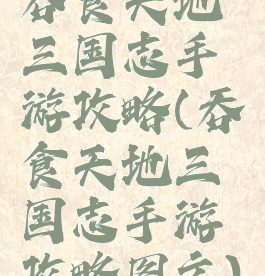 吞食天地
三国志手
游攻略(吞
食天地三
国志手游
攻略图文)